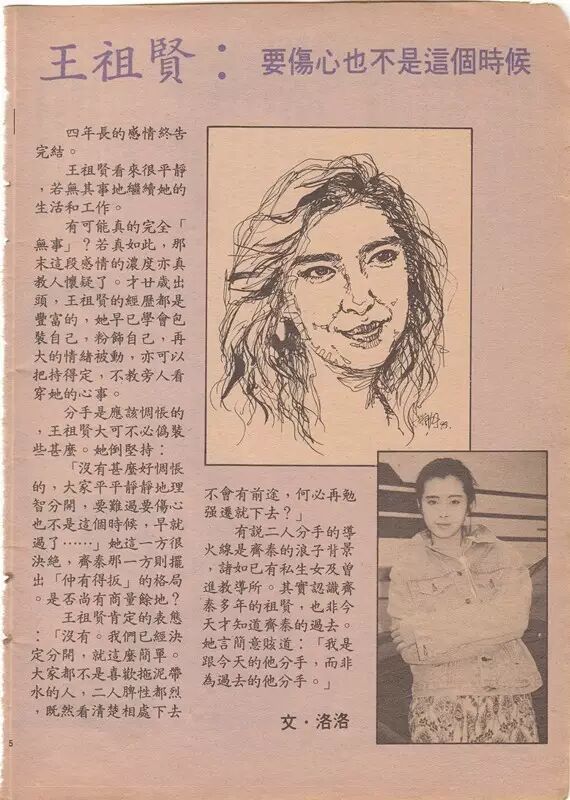 王祖賢：要傷心也不是這個時候
四年長的感情終告
完結。
王祖賢看來很平靜
，若無其事地繼續她的
生活和工作。
有可能真的完全「
無事」？若真如此，那
末這段感情的濃度亦真
教人懷疑了。才廿歲出
頭，王祖賢的經歷都是
豐富的，她早已學會包
裝自己，粉飾自己，再
大的情緒被動，亦可以
把持得定，不教旁人看
穿她的心事。
分手是應該惆悵的
，王祖賢大可不必偽裝
些甚麼。她倒堅持：
「沒有甚麼好惆悵
的，大家平平靜靜地理
智分開，要難過要傷心
也不是這個時候，早就
過了……」她這一方很
決絶，齊秦那一方則擺
出「仲有得扳」的格局
。是否尚有商量餘地？
王祖賢肯定的表態
：「沒有。我們已經決
定分開，就這麼簡單。
大家都不是喜歡拖泥帶
水的人，二人脾性都烈
，既然看清楚相處下去
不會有前途，何必再勉
强遷就下去？」
有説二人分手的導
火線是齊秦的浪子背景
，諸如已有私生女及曾
進教導所。其實認識齊
秦多年的祖賢，也非今
天才知道齊秦的過去。
她言簡意賅道：「我是
跟今天的他分手，而非
為過去的他分手。」
文·洛洛
5